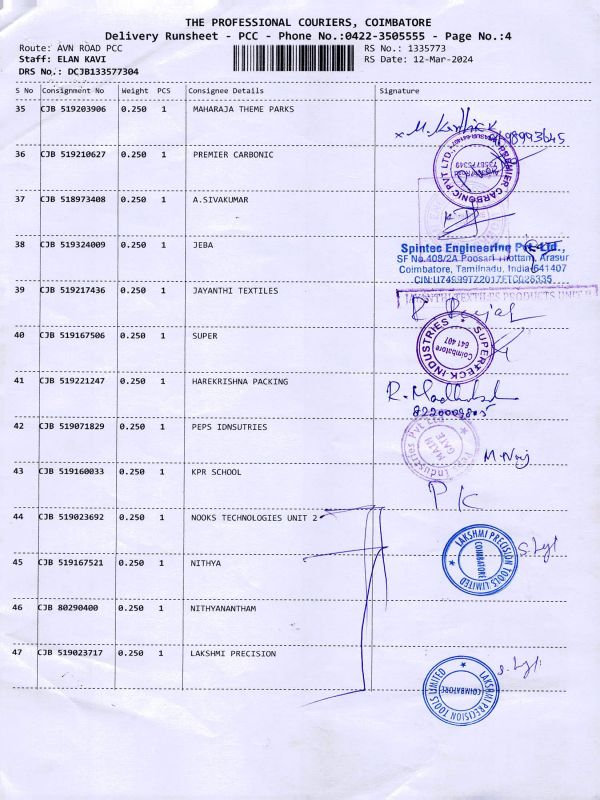 THE PROFESSIONAL COURIERS, COIMBATORE
Delivery Runsheet - PCC - Phone No.:0422-3505555 - Page No.:4
Route: AVN ROAD PCC RS No.: 1335773
Staff: ELAN KAVI RS Date: 12-Mar-2024
DRS No.: DCJB133577304
S No Consignment No Weight PCS Consignee Details Signature
35 CJB 519203906 0.250 1 MAHARAJA THEME PARKS
36 CJB 519210627 0.250 1 PREMIER CARBONIC
PREMIER CARBONIC PVT LTD.
37 CJB 518973408 0.250 1 A.SIVAKUMAR
38 CJB 519324009 0.250 1 JEBA
Spintec Engineering Pvt. Ltd.,
SF No.408/2A Poosari Thottam, Arasur
Coimbatore, Tamilnadu, India-641407
39 CJB 519217436 0.250 1 JAYANTHI TEXTILES
JAYANTHI TEXTILES PRODUCTS UNIT
40 CJB 519167506 0.250 1 SUPER
SUPER TECK INDUSTRIES
Coimbatore
641 407
41 CJB 519221247 0.250 1 HAREKRISHNA PACKING
42 CJB 519071829 0.250 1 PEPS IDNSUTRIES
MAIN
GATE
43 CJB 519160033 0.250 1 KPR SCHOOL
PK
44 CJB 519023692 0.250 1 NOOKS TECHNOLOGIES UNIT 2
LAKSHMI PRECISION TOOLS LIMITED
COIMBATORE
45 CJB 519167521 0.250 1 NITHYA
46 CJB 80290400 0.250 1 NITHYANANTHAM
47 CJB 519023717 0.250 1 LAKSHMI PRECISION
LAKSHMI PRECISION TOOLS LIMITED
COIMBATORE